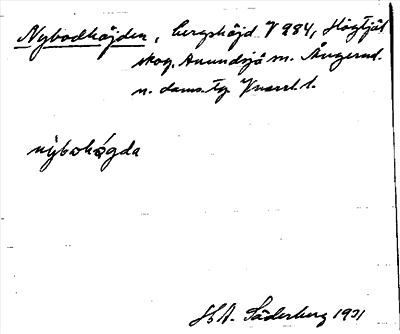 Nybodhöjden, bergshöjd V 984, Högtjäl
skog, Anundsjö sn. Ångerml.
n. dams. Tg
nýbohø̀gda
H A. Söderberg 1931